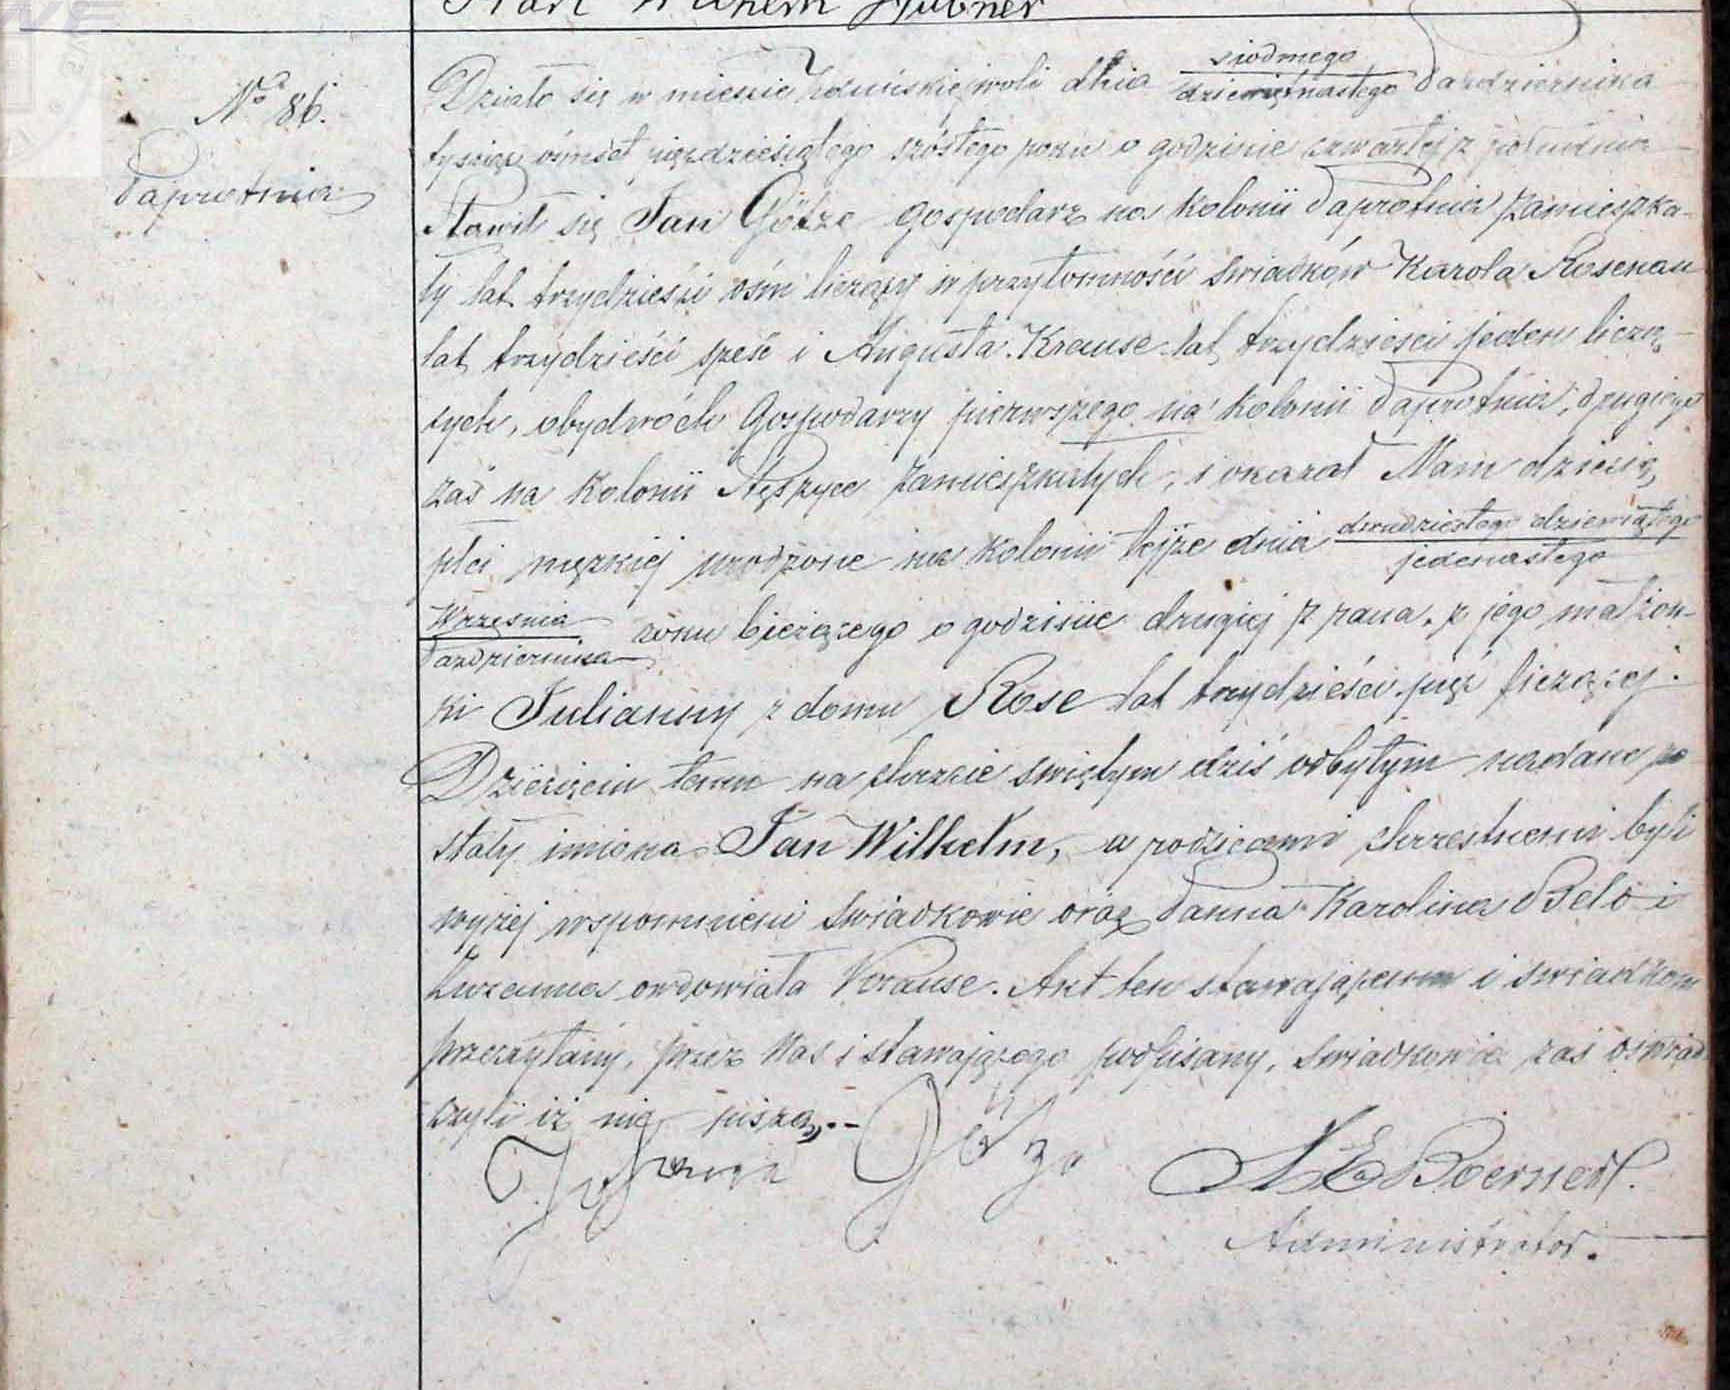 Karl Wilhelm Hübner
No 86.
Paprotnia
Działo się w mieście Zduńskiejwoli dnia siódmego / dziewiętnastego Października
tysiąc ośmset pięzdziesiątego szóstego roku o godzinie czwartej z południa
Stawił się Jan Götze gospodarz na Kolonii Paprotnia zamieszka-
ły lat trzydzieści ośm liczący w przytomności świadków Karola Rosenau
lat trzydzieści sześć i Augusta Krause lat trzydzieści jeden liczą-
cych, obydwóch Gospodarzy pierwszego na Kolonii Paprotnia, drugiego
zaś na Kolonii zamieszkałych, i okazał Nam dziecię
płci męzkiej urodzone na Kolonii tejże dnia dwudziestego dziewiątego / jedenastego
Września / Października roku bieżącego o godzinie drugiej z rana, z jego małżon-
ki Julianny z domu Rose lat trzydzieści pięć liczącej.
Dziecięciu temu na chrzcie świętym dziś odbytym nadane zo
stały imiona Jan Wilhelm, a rodzicami chrzestnemi byli
wyżej wspomnieni świadkowie oraz Panna Karolina i
Zuzanna owdowiała Krause. Akt ten stawającemu i świadkom
przeczytany, przez Nas i stawającego podpisany, świadkowie zaś oświad
czyli iż nie piszą.-
Johann Götze
Boerner
Administrator.